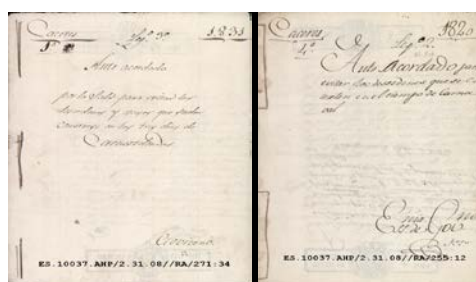 Caceres
Leg.º 3º
1831
1º
Auto acordado
por la Sala para evitar los
desordenes y que suelen
en los tres dias de
Carnestolendas
ES.10037.AHP/2.31.08//RA/271:34
Caceres
Leg.º 2.
1820
4.º
Auto Acordado para
evitar los desordenes que se
en el tiempo de Carna
val
ES.10037.AHP/2.31.08//RA/255:12